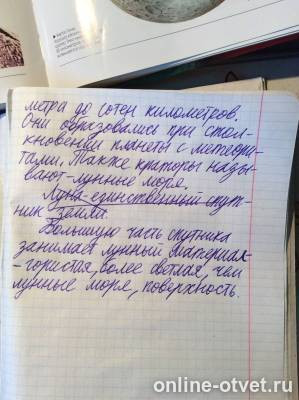 метра до сотен километров.
Они образовались при стол-
кновении планеты с метеори-
тами. Также кратеры назы-
вают-лунные моря.
Луна-единственный спут-
ник Земли
Большую часть спутника
занимает лунный материк-
-гористая, более светлая, чем
лунные моря, поверхность.
online-otvet.ru